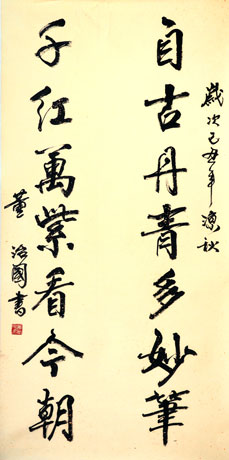 歲次己丑年涼秋
自古丹青多妙筆
千紅萬紫看今朝
董治國書